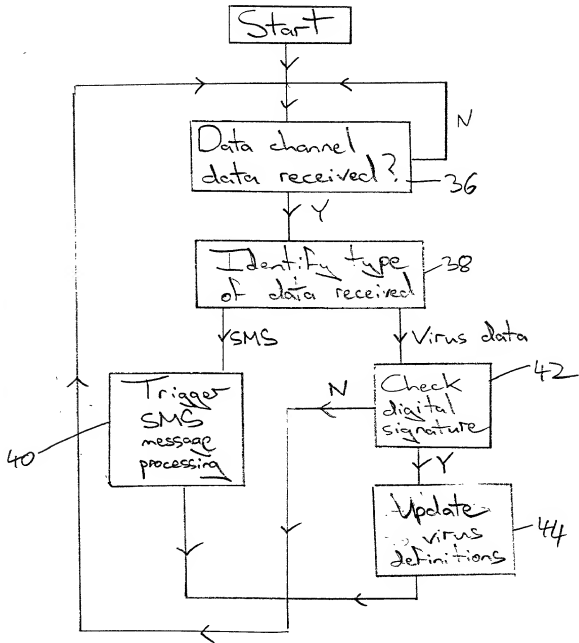 Start
N
Data channel
data received?
36
Y
Identify type
of data received
38
SMS
Virus data
Trigger
SMS
message
processing
40
N
Check
digital
signature
42
Y
Update
virus
definitions
44